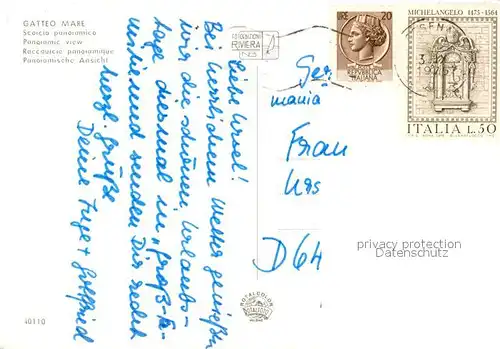 GATTEO MARE
Scorcio panoramico
Panoramic view
Raccourcie panoramique
Panoramische Ansicht
Liebe Ursel!
Bei herrlichem Wetter genießen
wir die schönen Urlaubs-
tage diesmal in „Groß-Fa-
milie und senden Dir recht
herzl. Grüße
Deine Inge + Gottfried
40110
ROTALCOLOR
ROTALFOTO
MILANO
RIVIERA
LIRE 20
REPVBBLICA
ITALIANA
MICHELANGELO 1475-1564
ITALIA L.50
Ger
mania
Frau
Urs
D 64
privacy protection
Datenschutz